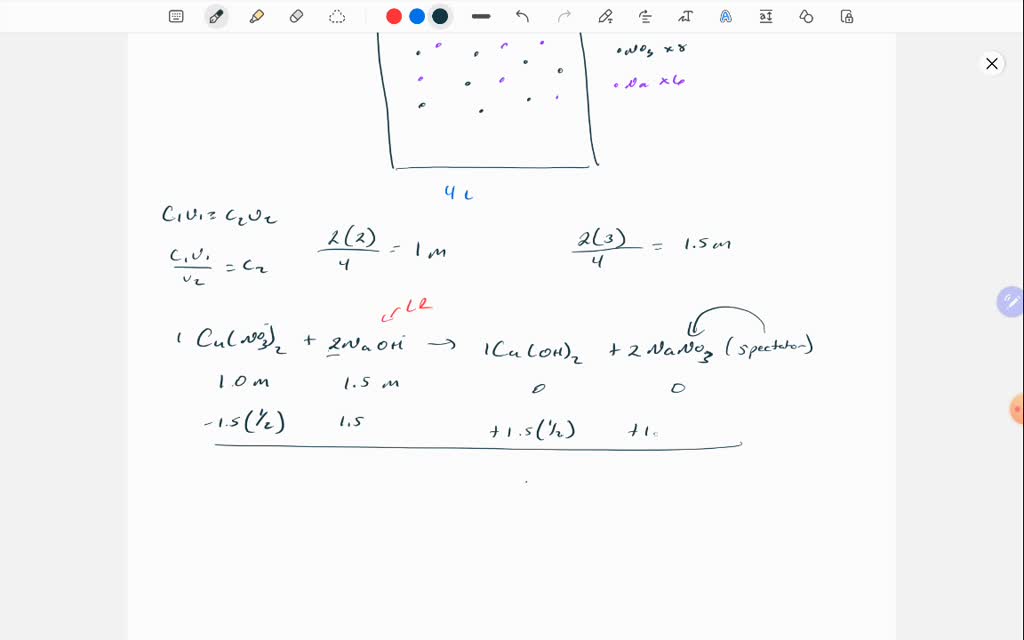 • NO3 x 8
• Na x6
4 L
C1V1 = C2V2
C1V1/V2 = C2
2(2)/4 = 1 M
2(3)/4 = 1.5 M
LR
1 Cu(NO3⁻)2 + 2NaOH → 1Cu(OH)2 + 2NaNO3 (spectator)
1.0 M 1.5 M 0 0
-1.5(1/2) 1.5 +1.5(1/2) +1.